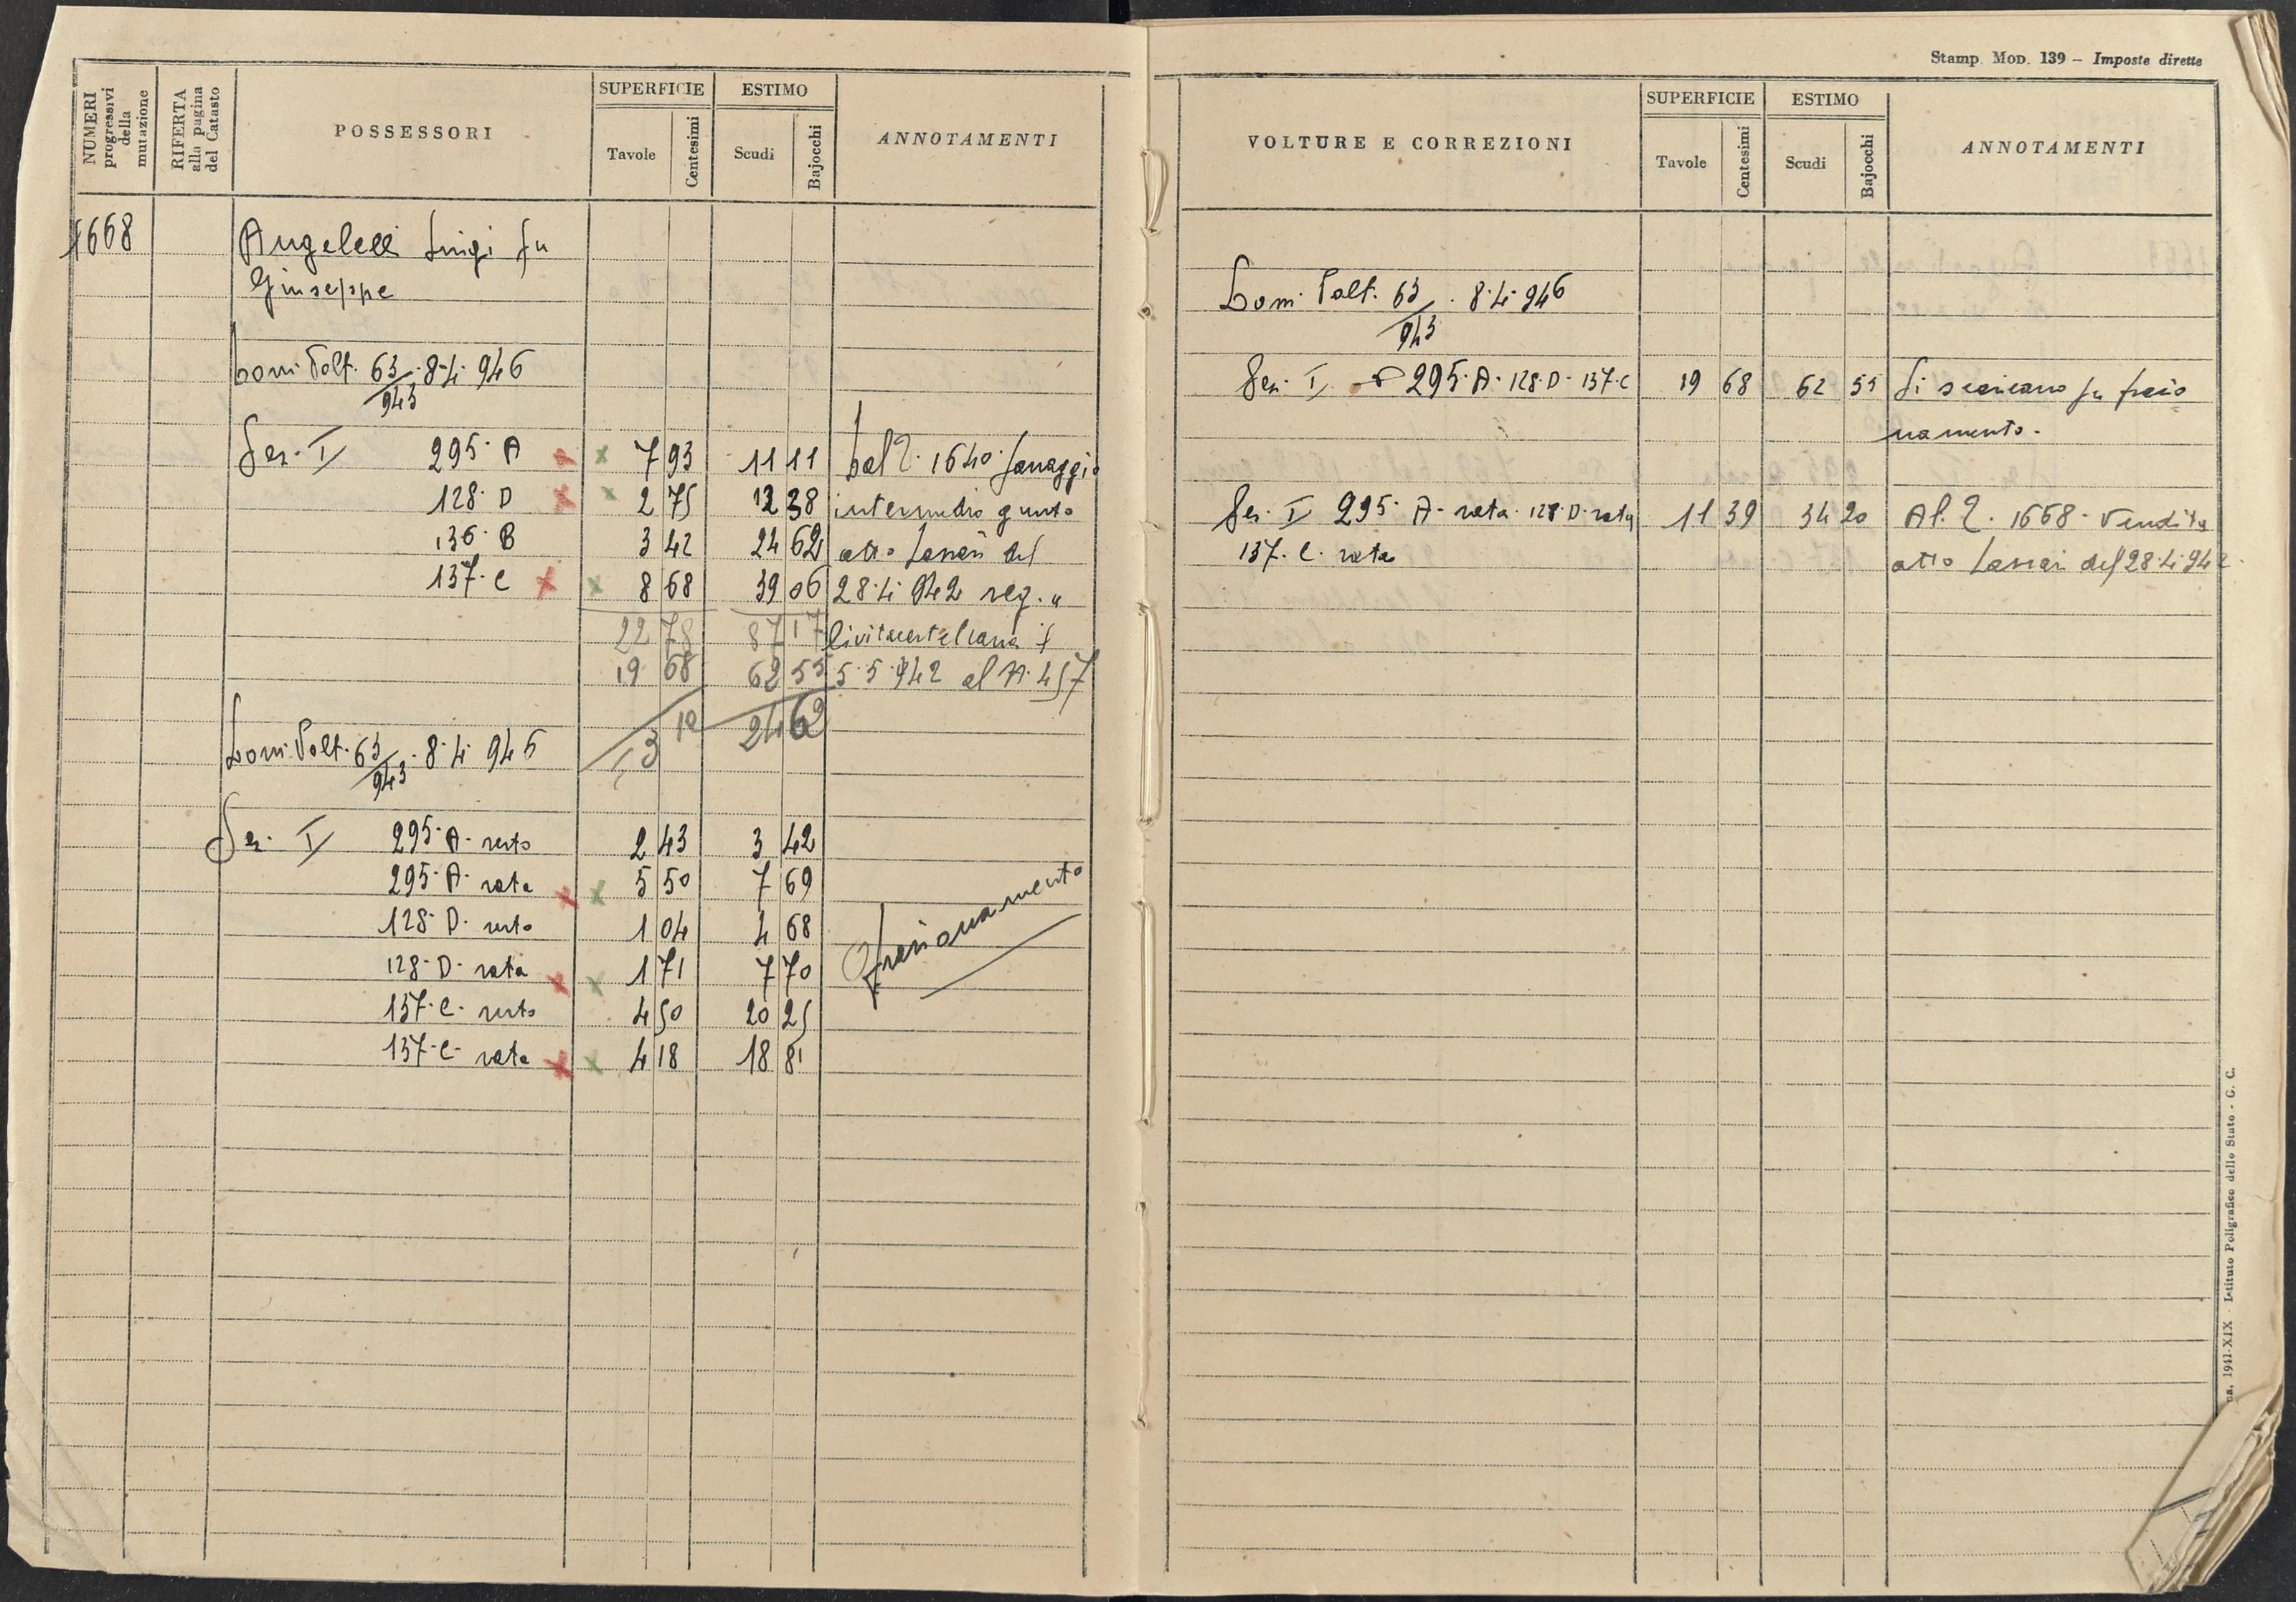 NUMERI progressivi della mutazione
RIFERTA alla pagina del Catasto
POSSESSORI
SUPERFICIE
Tavole
Centesimi
ESTIMO
Scudi
Bajocchi
ANNOTAMENTI
1668
Angelelli Luigi fu
Giuseppe
Dom. Volt. 63/943 · 8·4· 946
Sez. I 295· A 7 93 11 11 Dal N. 1640 Passaggio
128· D 2 75 12 38 intermedio giusto
136· B 3 42 24 62 atto del
137· C 8 68 39 06 28·4·942 reg. a
22 78 87 17 Civitacastellana il
19 68 62 55 5·5·942 al N. 457
3 10 24 62
Dom. Volt. 63/943 · 8·4· 946
Sez. I 295· A· resto 2 43 3 42
295· A· rata 5 50 7 69
128· D· resto 1 04 4 68
128· D· rata 1 71 7 70
137· C· resto 4 50 20 25
137· C· rata 4 18 18 81
frazionamento
Stamp. Mod. 139 – Imposte dirette
VOLTURE E CORREZIONI
SUPERFICIE
Tavole
Centesimi
ESTIMO
Scudi
Bajocchi
ANNOTAMENTI
Dom. Volt. 63/943 · 8·4· 946
Sez. I 295· A· 128· D· 137· C 19 68 62 55 Si scaricano frazio
namento.
Sez. I 295· A· rata· 128· D· rata 11 39 34 20 Al N. 1668· Vendita
137· C· rata atto del 28·4·942
1941-XIX - Istituto Poligrafico dello Stato - G. C.